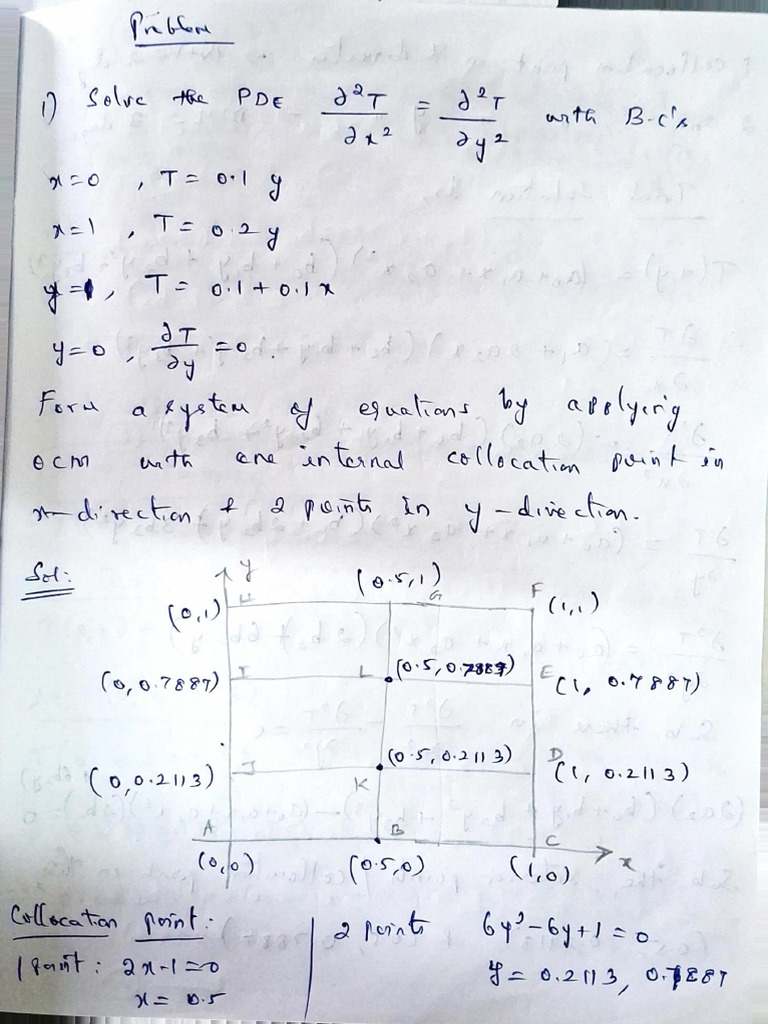 Problem
1) Solve the PDE ∂²T/∂x² = ∂²T/∂y² with B.C's
x=0 , T= 0.1 y
x=1 , T= 0.2 y
y=1, T= 0.1+0.1x
y=0 , ∂T/∂y =0.
Form a system of equations by applying
OCM with one internal collocation point in
x-direction & 2 points in y-direction.
Sol:
y
(0.5,1)
(0,1) H G F (1,1)
(0, 0.7887) I L (0.5, 0.7887) E (1, 0.7887)
(0.5, 0.2113)
(0, 0.2113) J K D (1, 0.2113)
A B C
x
(0,0) (0.5,0) (1,0)
Collocation point:
1 point: 2x-1=0
x= 0.5
2 points 6y²-6y+1=0
y= 0.2113, 0.7887